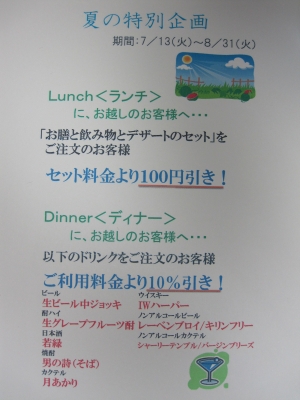 夏の特別企画
期間:7／13(火)～8／31(火)
Lunch＜ランチ＞
に、お越しのお客様へ･･･
「お膳と飲み物とデザートのセット」を
ご注文のお客様
セット料金より100円引き！
Dinner＜ディナー＞
に、お越しのお客様へ･･･
以下のドリンクをご注文のお客様
ご利用料金より10％引き！
ビール
生ビール中ジョッキ
酎ハイ
生グレープフルーツ酎
日本酒
若緑
焼酎
男の詩(そば)
カクテル
月あかり
ウイスキー
IWハーパー
ノンアルコールビール
レーベンブロイ/キリンフリー
ノンアルコールカクテル
シャーリーテンプル/バージンブリーズ